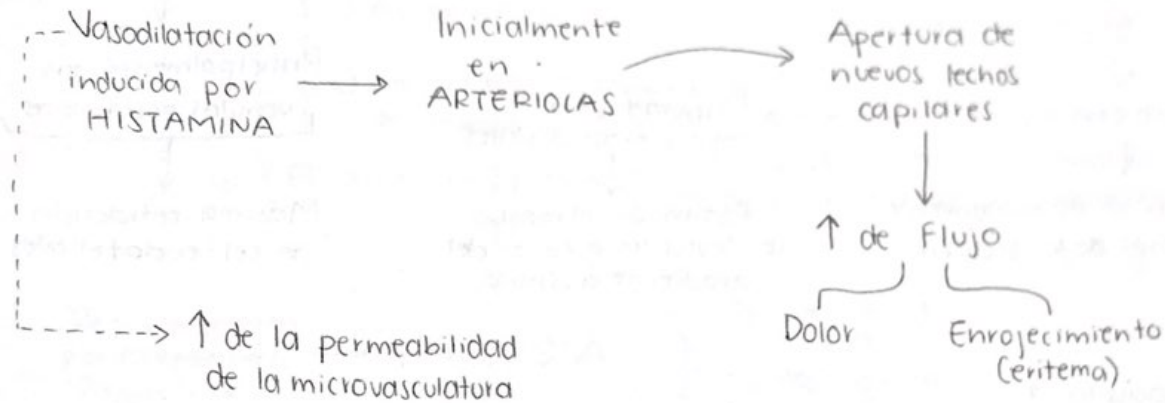 Vasodilatación
inducida por
HISTAMINA
Inicialmente
en
ARTERIOLAS
Apertura de
nuevos lechos
capilares
↑ de Flujo
Dolor
Enrojecimiento
(eritema)
↑ de la permeabilidad
de la microvasculatura